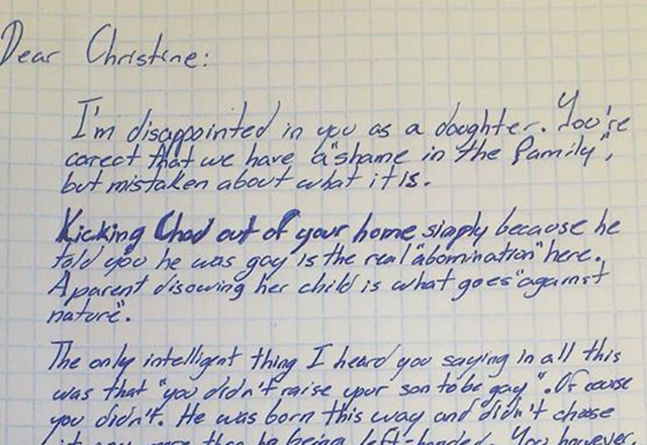 Dear Christine:
I'm disappointed in you as a daughter. You're
corect that we have a "shame in the family",
but mistaken about what it is.
Kicking Chad out of your home simply because he
told you he was gay is the real "abomination" here.
A parent disowing her child is what goes "against
nature".
The only intelligent thing I heard you saying in all this
was that "you didn't raise your son to be gay". Of couse
you didn't. He was born this way and didn't choose
it any more than he being left-handed. You however,